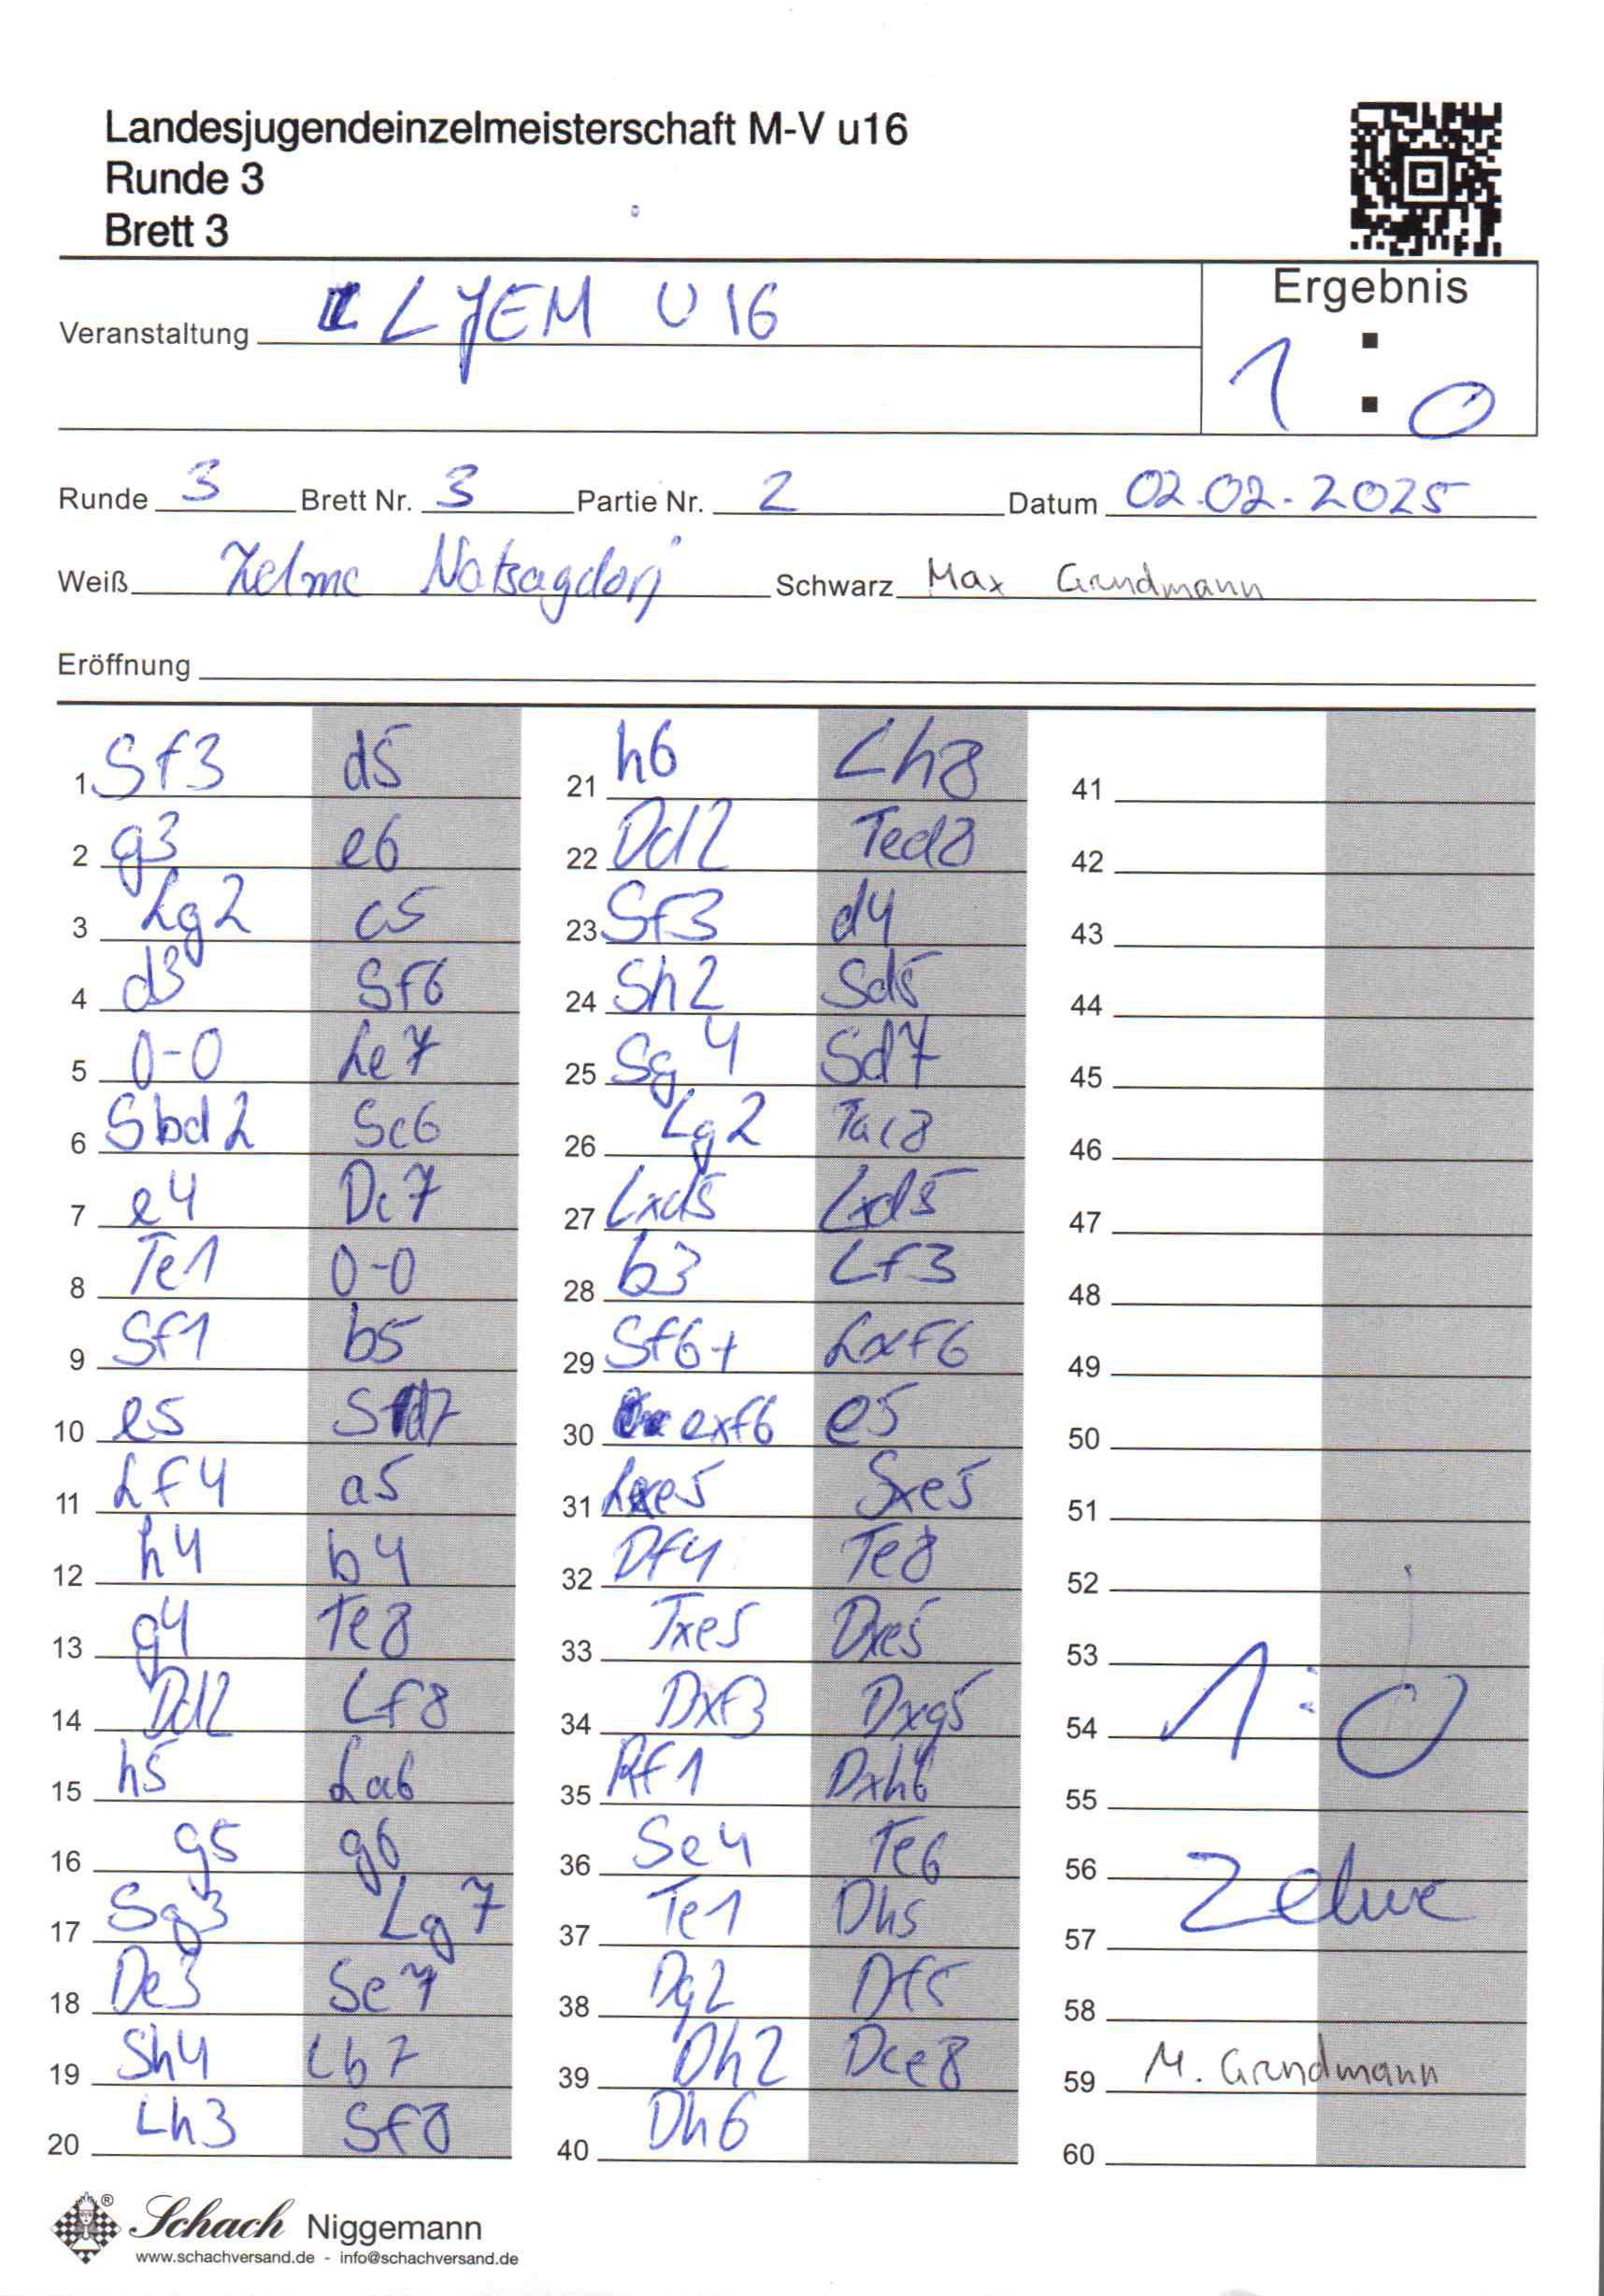 Landesjugendeinzelmeisterschaft M-V u16
Runde 3
Brett 3
Ergebnis
1 : 0
Veranstaltung LJEM U16
Runde 3 Brett Nr. 3 Partie Nr. 2 Datum 02.02.2025
Weiß Zelme Natsagdorj Schwarz Max Grundmann
Eröffnung
1 Sf3 d5
2 g3 e6
3 Lg2 c5
4 d3 Sf6
5 0-0 Le7
6 Sbd2 Sc6
7 e4 Dc7
8 Te1 0-0
9 Sf1 b5
10 e5 Sd7
11 Lf4 a5
12 h4 b4
13 g4 Te8
14 Dd2 Lf8
15 h5 La6
16 g5 g6
17 Sg3 Lg7
18 De3 Se7
19 Sh4 Lb7
20 Lh3 Sf8
21 h6 Lh8
22 Dd2 Ted8
23 Sf3 d4
24 Sh2 Sd5
25 Sg4 Sd7
26 Lg2 Tac8
27 Lxd5 Lxd5
28 b3 Lf3
29 Sf6+ Lxf6
30 exf6 e5
31 Lxe5 Sxe5
32 Df4 Te8
33 Txe5 Dxe5
34 Dxf3 Dxg5
35 Kf1 Dxh6
36 Se4 Te6
37 Te1 Dh5
38 Dg2 Df5
39 Dh2 Dce8
40 Dh6
41
42
43
44
45
46
47
48
49
50
51
52
53
54 1:0
55
56 Zelme
57
58
59 M. Grundmann
60
Schach Niggemann
www.schachversand.de - info@schachversand.de